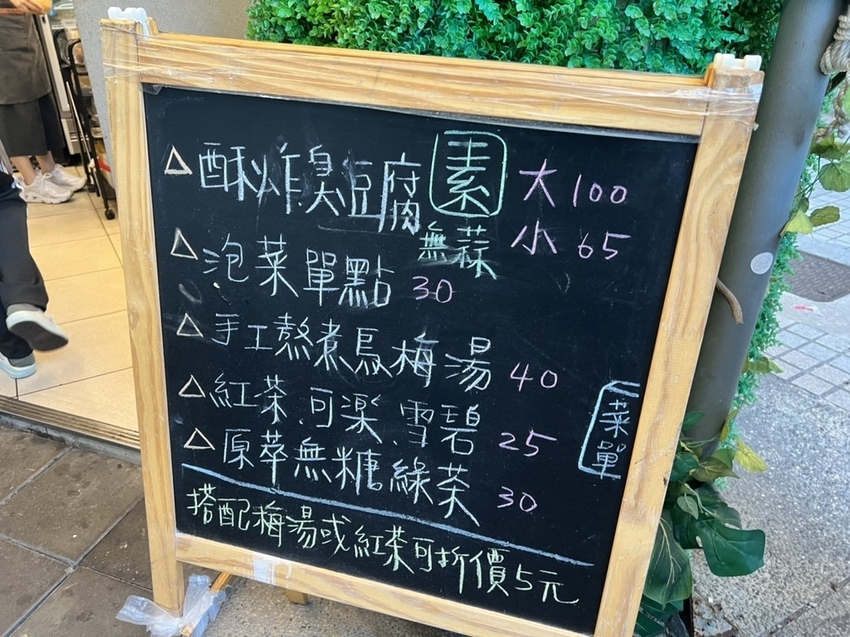 △酥炸臭豆腐 素 大 100
無蒜 小 65
△泡菜單點 30
△手工熬煮烏梅湯 40
△紅茶.可樂.雪碧 25
△原萃無糖綠茶 30
菜單
搭配梅湯或紅茶可折價5元